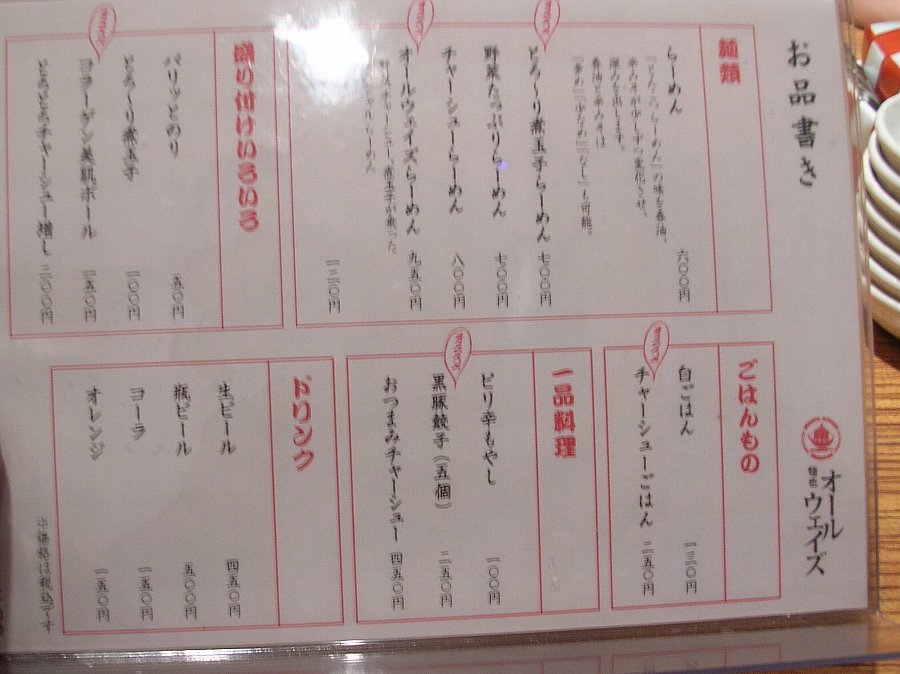 お品書き
麺類
らーめん 六〇〇円
とろ〜り煮玉子らーめん 七〇〇円
野菜たっぷりらーめん 七〇〇円
チャーシューらーめん 八〇〇円
オールウェイズらーめん 九五〇円
盛り付けいろいろ
パリッとのり 一五〇円
とろ〜り煮玉子 一〇〇円
コラーゲン美肌ボール 一五〇円
とろとろチャーシュー増し 二〇〇円
ごはんもの
白ごはん 一三〇円
チャーシューごはん 二五〇円
一品料理
ピリ辛もやし 一〇〇円
黒豚餃子(五個) 二五〇円
おつまみチャーシュー 四五〇円
ドリンク
生ビール 四五〇円
瓶ビール 五〇〇円
コーラ 一五〇円
オレンジ 一五〇円
※価格は税込です
オール
ウェイズ